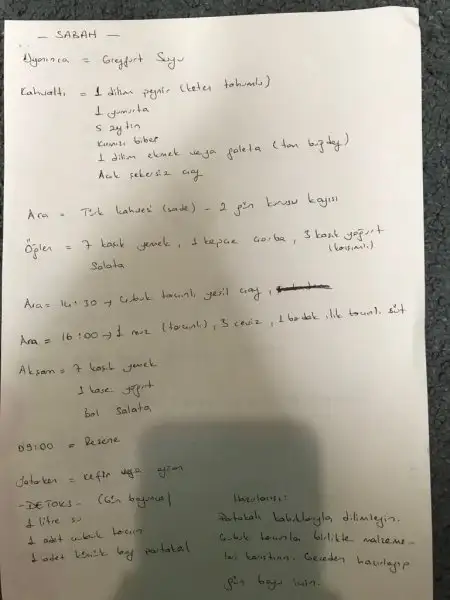 - SABAH -
Uyanınca = Greyfurt Suyu
Kahvaltı = 1 dilim peynir (keten tohumlu)
1 yumurta
5 zeytin
Kırmızı biber
1 dilim ekmek veya galeta (tam buğday)
Açık şekersiz çay
Ara = Türk kahvesi (sade) - 2 gün kurusu kayısı
Öğlen = 7 kaşık yemek, 1 kepçe çorba, 3 kaşık yoğurt
(karışımlı)
Salata
Ara = 14:30 → Çubuk tarçınlı yeşil çay,
Ara = 16:00 → 1 (tarçınlı), 3 ceviz, 1 bardak ılık tarçınlı süt
Akşam = 7 kaşık yemek
1 kase yoğurt
bol salata
= Rezene
Yatarken = Kefir veya ayran
- DETOKS - (Gün boyunca)
1 litre su
1 adet çubuk tarçın
1 adet küçük boy portakal
Hazırlanışı:
Portakalı kabuklarıyla dilimleyin.
Çubuk tarçınla birlikte malzeme-
leri karıştırın. Geceden hazırlayıp
gün boyu için.